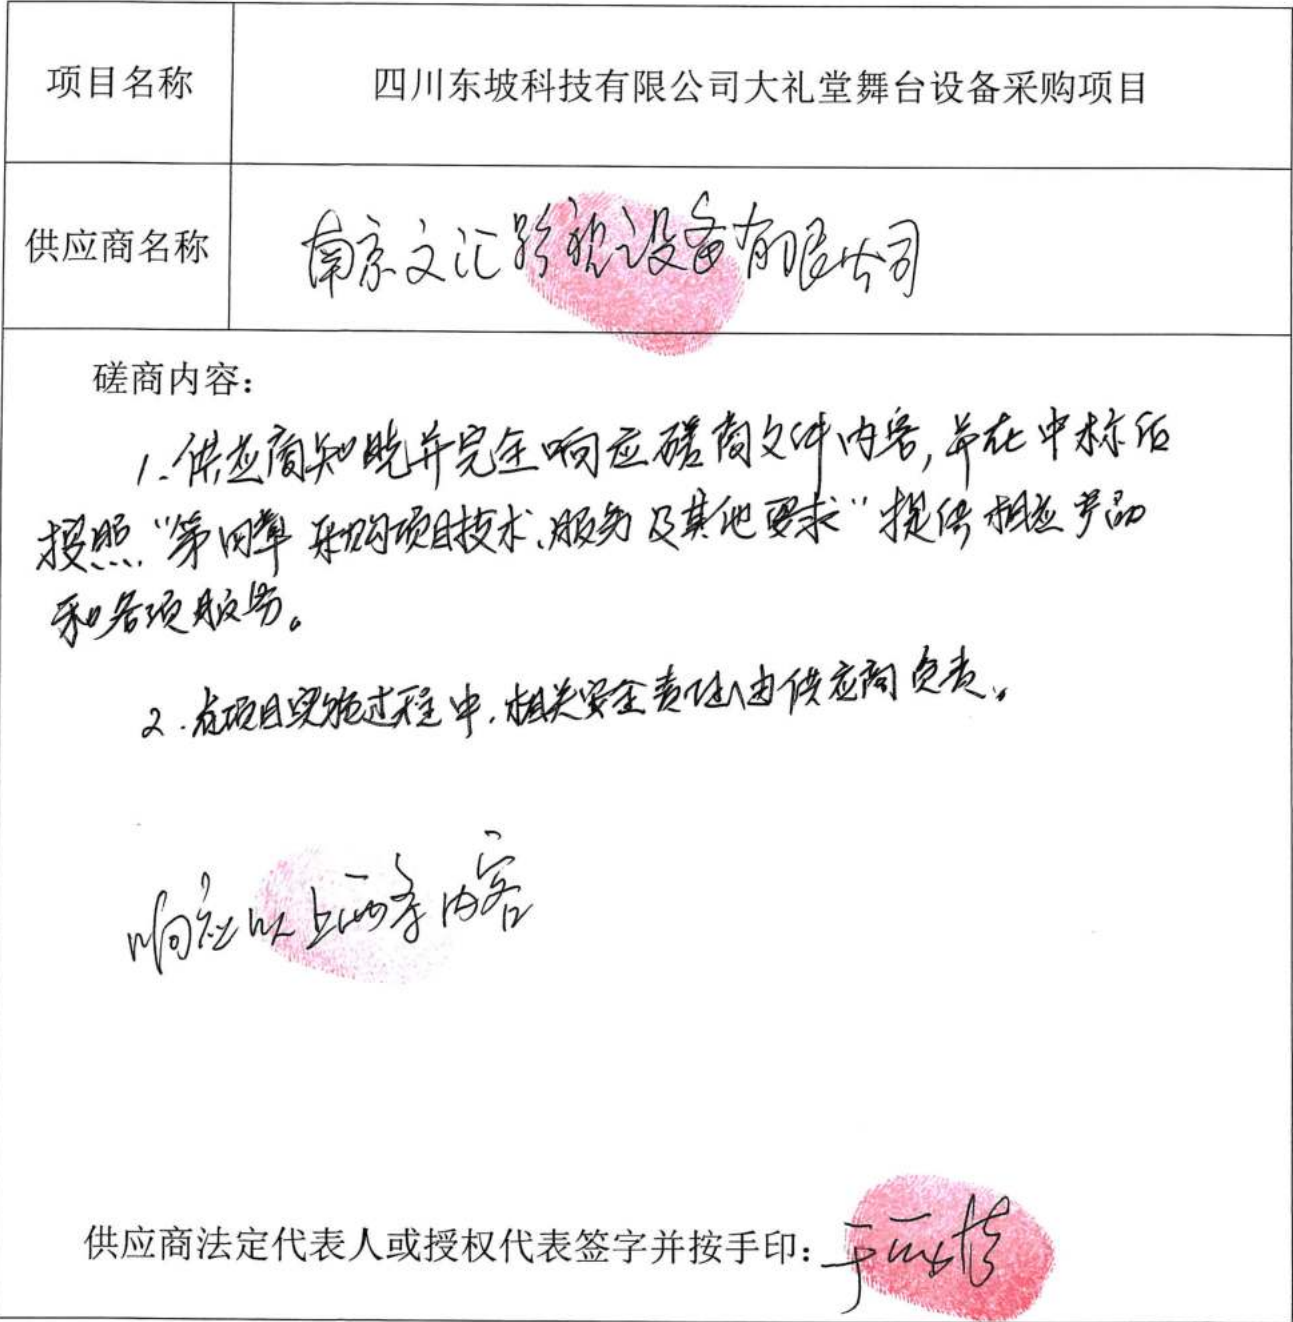 项目名称
四川东坡科技有限公司大礼堂舞台设备采购项目
供应商名称
南京文汇影视设备有限公司
磋商内容：
1.供应商知晓并完全响应磋商文件内容,并在中标后
按照“第四章 采购项目技术、服务及其他要求”提供相应产品
和各项服务。
2.在项目实施过程中,相关安全责任由供应商负责。
响应以上两条内容
供应商法定代表人或授权代表签字并按手印：